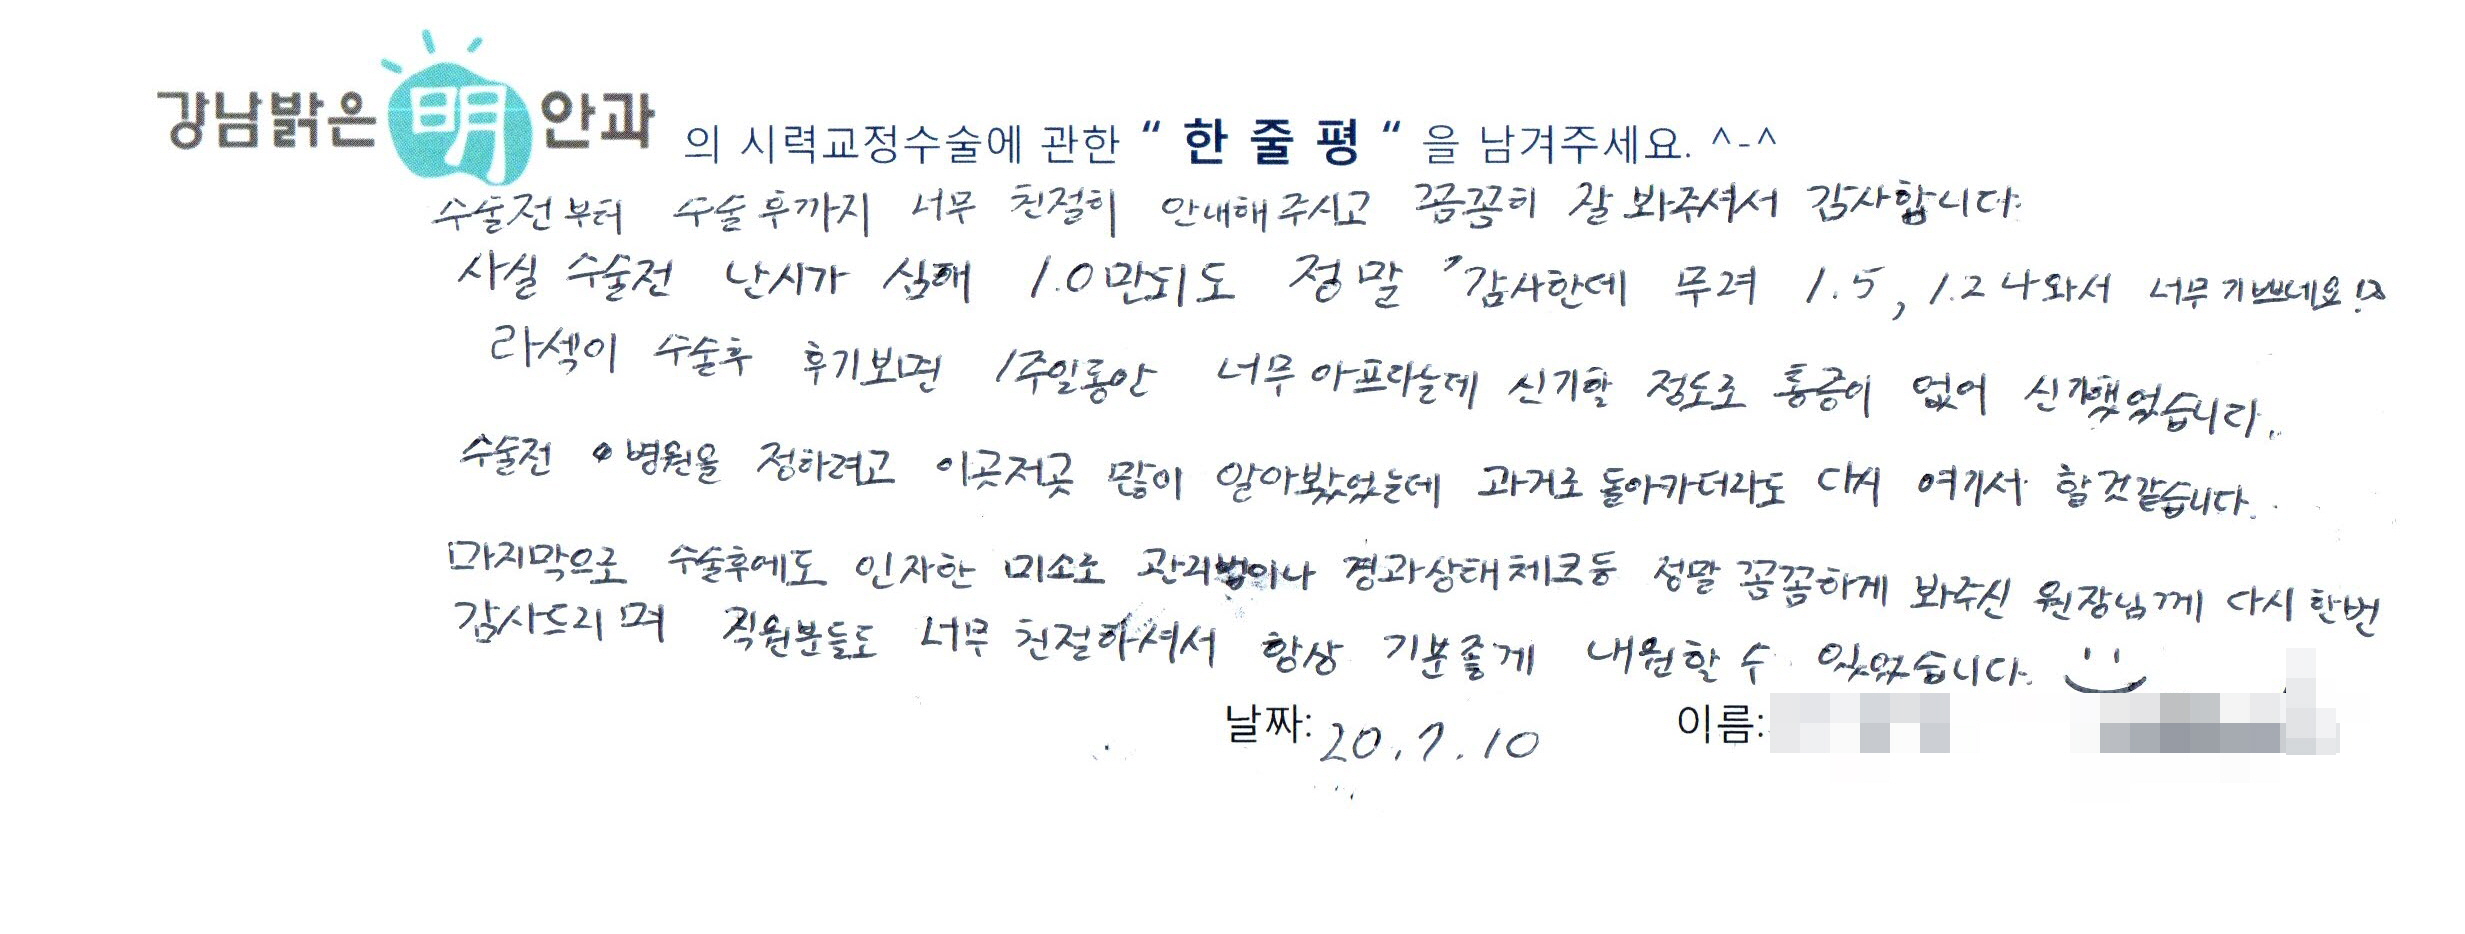 강남밝은明안과 의 시력교정수술에 관한 “ 한 줄 평 “ 을 남겨주세요. ^-^
수술전부터 수술후까지 너무 친절히 안내해주시고 꼼꼼히 잘 봐주셔서 감사합니다.
사실 수술전 난시가 심해 1.0만되도 정말 감사한데 무려 1.5, 1.2 나와서 너무 기쁘네요!
라섹이 수술후 후기보면 1주일동안 너무 아프라는데 신기할 정도로 통증이 없어 신기했었습니다.
수술전 병원을 정하려고 이곳저곳 많이 알아봤었는데 과거로 돌아가더라도 다시 여기서 할것같습니다.
마지막으로 수술후에도 인자한 미소로 관리법이나 경과상태체크등 정말 꼼꼼하게 봐주신 원장님께 다시한번
감사드리며 직원분들도 너무 친절하셔서 항상 기분좋게 내원할 수 있었습니다.
날짜: 20.7.10 이름: